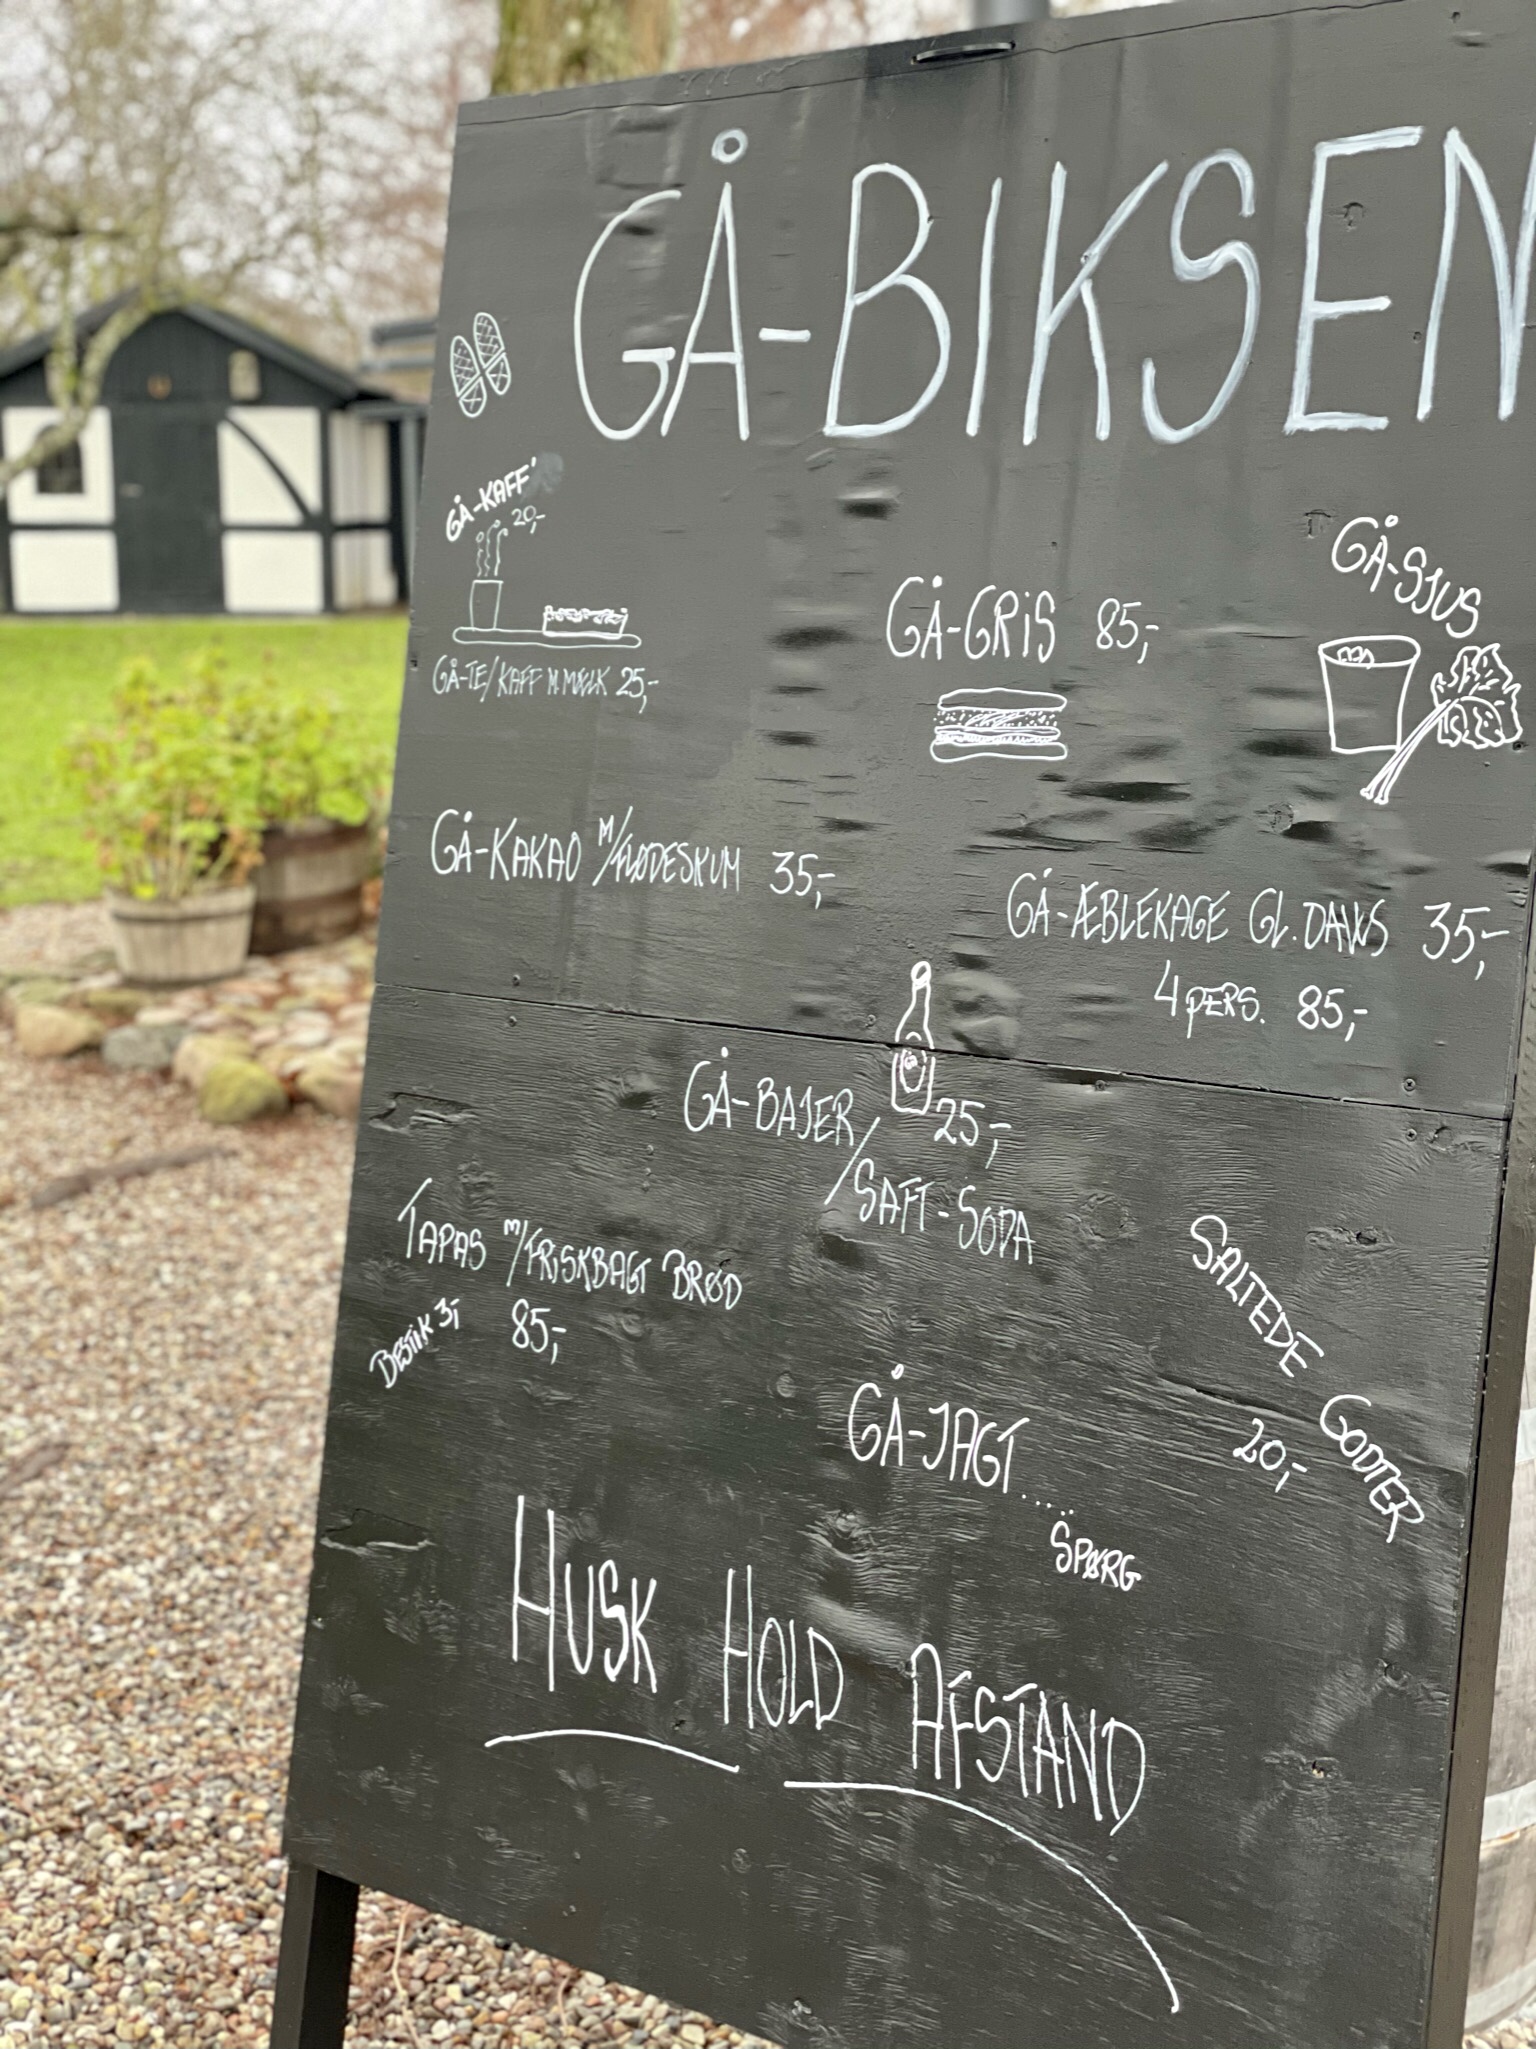 GÅ-BIKSEN
GÅ-KAFF'
20,-
GÅ-TE/KAFF M MÆLK 25,-
GÅ-GRIS 85,-
GÅ-SJUS
GÅ-KAKAO M/FLØDESKUM 35,-
GÅ-ÆBLEKAGE GL. DAWS 35,-
4 PERS. 85,-
GÅ-BAJER/ 25,-
/SAFT-SODA
TAPAS M/FRISKBAGT BRØD
BESTIK 3,- 85,-
SALTEDE GODTER
20,-
GÅ-JAGT....
SPØRG
HUSK HOLD AFSTAND